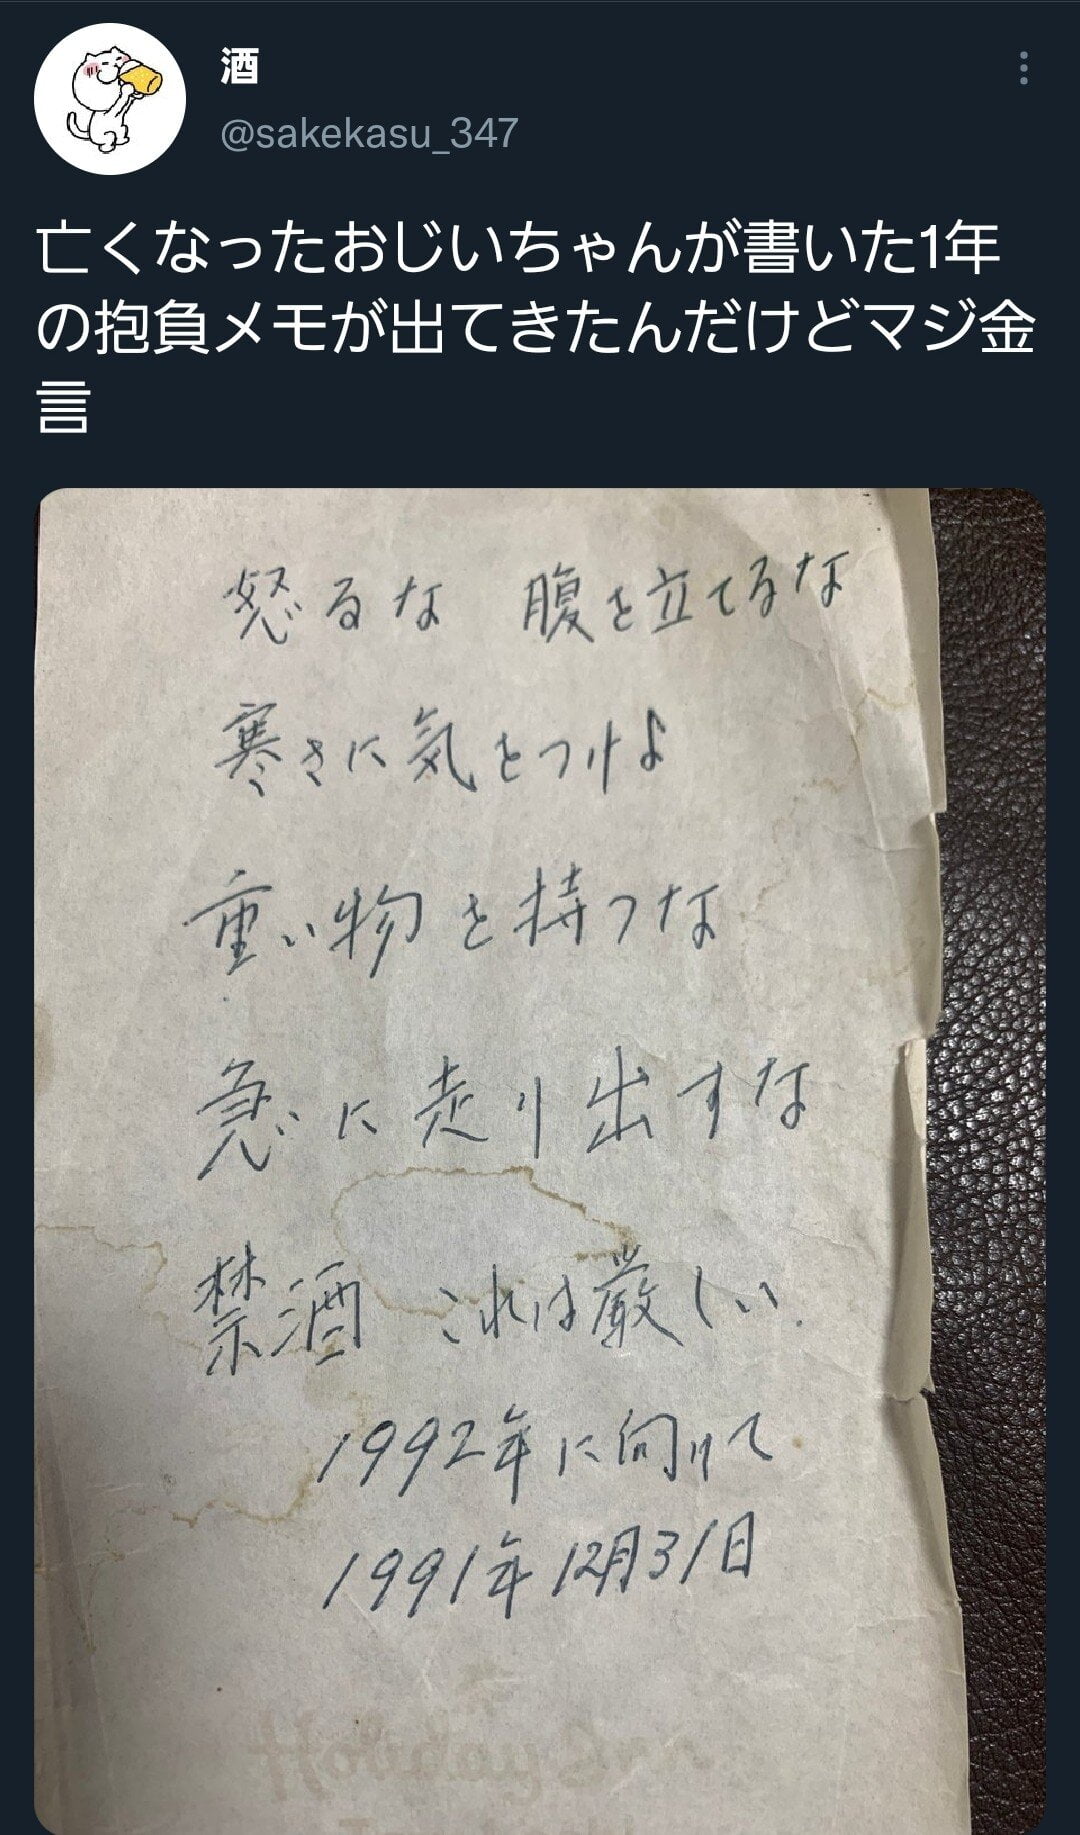 酒
@sakekasu_347
亡くなったおじいちゃんが書いた1年
の抱負メモが出てきたんだけどマジ金
言
怒るな 腹を立てるな
寒さに気をつけよ
重い物を持つな
急に走り出すな
禁酒 これは厳しい.
1992年に向けて
1991年12月31日